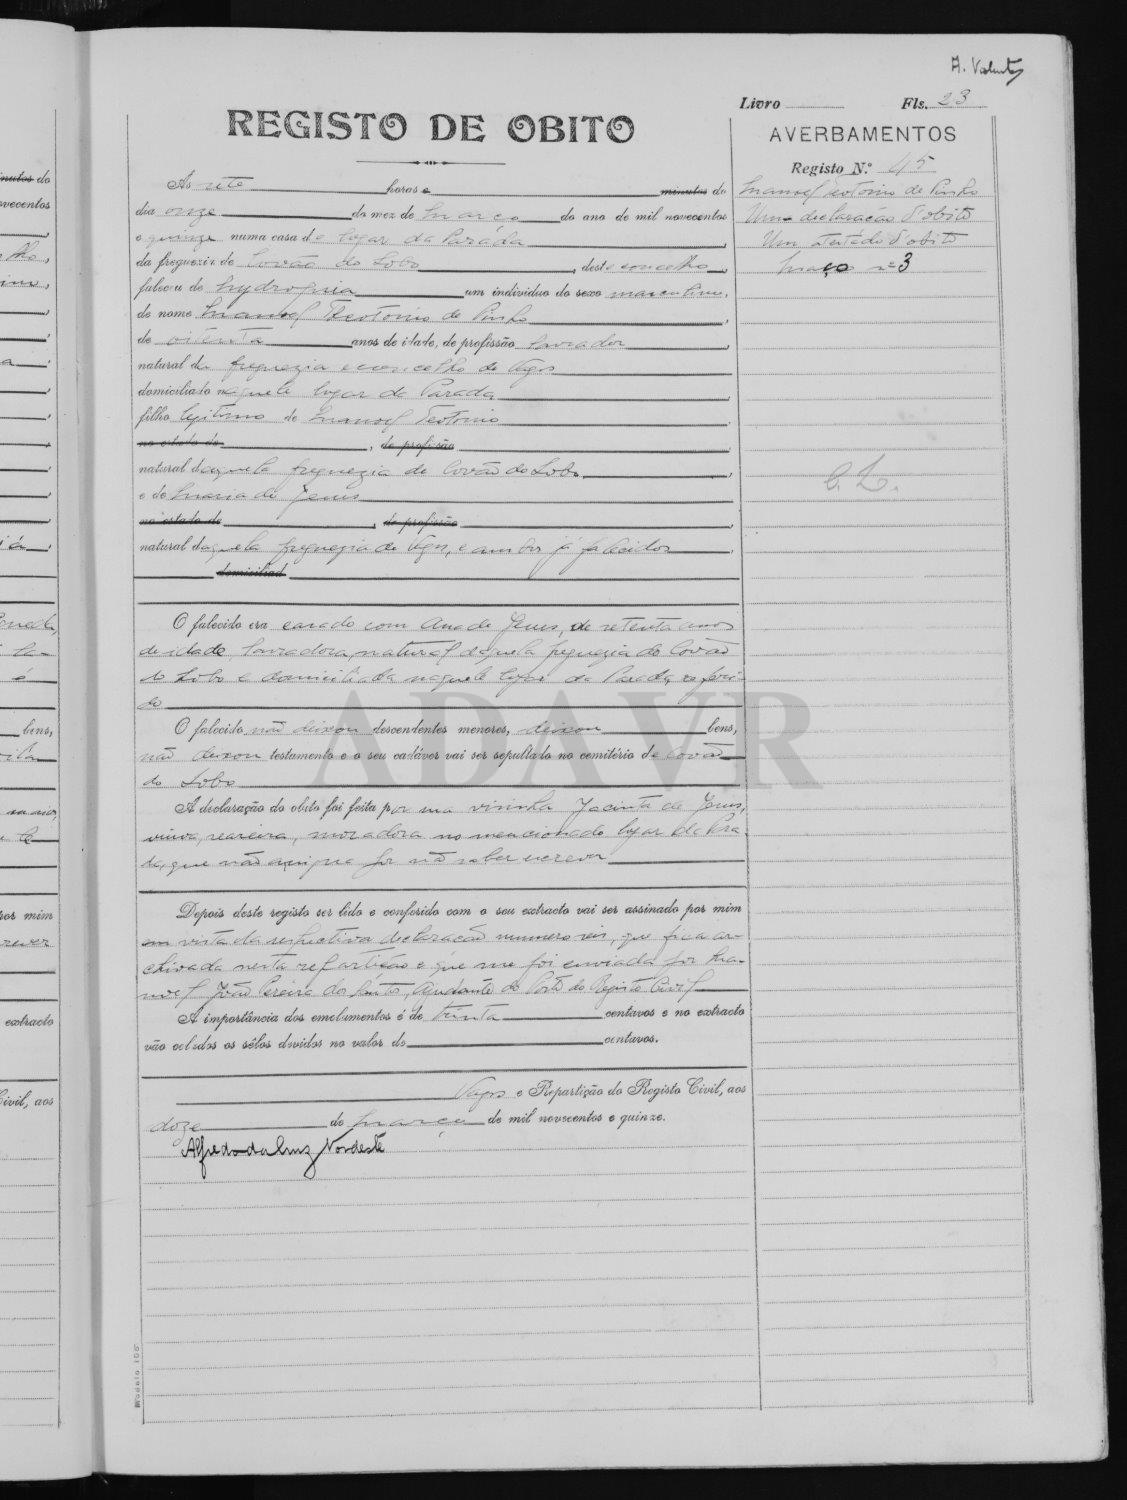 A. Valente
Livro Fls. 23
REGISTO DE OBITO
AVERBAMENTOS
Registo N.º 45
Manoel Teotonio de Pinho
Uma declaração d'obito
Um d'obito
Maço nº 3
C. L.
As sete horas e minutos do
dia onze do mez de Março do ano de mil novecentos
e quinze numa casa do logar da Paráda
da freguezia de Covão do Lobo, deste concelho,
faleceu de hydropsia um individuo do sexo masculino,
de nome Manoel Teotonio de Pinho
de oitenta anos de idade, de profissão lavrador
natural da freguezia e concelho de Vagos
domiciliado naquele logar da Parada
filho legitimo de Manoel Teotonio
no estado de, de profissão
natural daquela freguezia de Covão do Lobo
e de Maria de Jesus
no estado de, de profissão
natural daquela freguezia de Vagos, e ambos já falecidos
domiciliad
O falecido era casado com Ana de Jesus, de setenta anos
de idade, lavradora, natural daquela freguezia do Covão
do Lobo e domiciliada naquele logar da Parada, referi-
do
O falecido não deixou descendentes menores, deixou bens,
não deixou testamento e o seu cadáver vai ser sepultado no cemitério de Covão
do Lobo
A declaração do obito foi feita por sua visinha Jacinta de Jesus,
viuva, moradora no mencionado logar da Para-
da, que não assigna por não saber escrever
Depois deste registo ser lido e conferido com o seu extracto vai ser assinado por mim
em vista da respectiva declaração numero seis, que fica ar-
chivada nesta repartição e que me foi enviada por Ma-
noel João Pereira dos Santos, Ajudante do Posto do Registo Civil
A importância dos emolumentos é de trinta centavos e no extracto
vão colados os sêlos devidos no valor de centavos.
Vagos e Repartição do Registo Civil, aos
doze de Março de mil novecentos e quinze.
Alfredo da Cruz Nordeste
Modelo 106
ADAVR